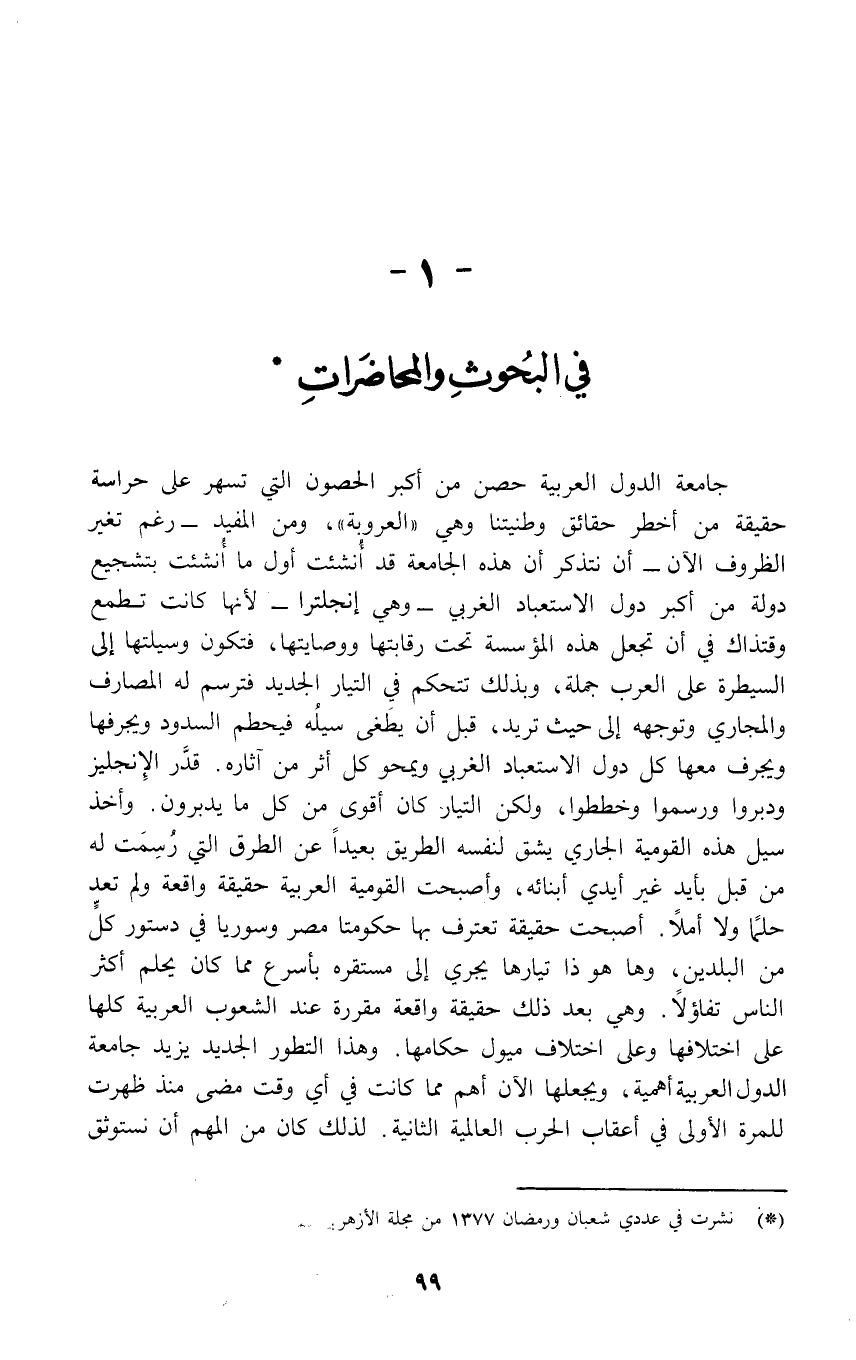 - ١ -
في البُحوثِ والمحاضَراتِ *
جامعة الدول العربية حصن من أكبر الحصون التي تسهر على حراسة
حقيقة من أخطر حقائق وطنيتنا وهي «العروبة»، ومن المفيد ــ رغم تغير
الظروف الآن ــ أن نتذكر أن هذه الجامعة قد أُنشئت أول ما أُنشئت بتشجيع
دولة من أكبر دول الاستعباد الغربي ــ وهي إنجلترا ــ لأنها كانت تطمع
وقتذاك في أن تجعل هذه المؤسسة تحت رقابتها ووصايتها، فتكون وسيلتها إلى
السيطرة على العرب جملة، وبذلك تتحكم في التيار الجديد فترسم له المصارف
والمجاري وتوجهه إلى حيث تريد، قبل أن يطَغى سيلُه فيحطم السدود ويجرفها
ويجرف معها كل دول الاستعباد الغربي ويمحو كل أثر من آثاره. قدَّر الإنجليز
ودبروا ورسموا وخططوا، ولكن التيار كان أقوى من كل ما يدبرون. وأخذ
سيل هذه القومية الجاري يشق لنفسه الطريق بعيداً عن الطرق التي رُسِمَت له
من قبل بأيد غير أيدي أبنائه، وأصبحت القومية العربية حقيقة واقعة ولم تعد
حلمًا ولا أملاً. أصبحت حقيقة تعترف بها حكومتا مصر وسوريا في دستور كلٍّ
من البلدين، وها هو ذا تيارها يجري إلى مستقره بأسرع مما كان يحلم أكثر
الناس تفاؤلاً. وهي بعد ذلك حقيقة واقعة مقررة عند الشعوب العربية كلها
على اختلافها وعلى اختلاف ميول حكامها. وهذا التطور الجديد يزيد جامعة
الدول العربية أهمية، ويجعلها الآن أهم مما كانت في أي وقت مضى منذ ظهرت
للمرة الأولى في أعقاب الحرب العالمية الثانية. لذلك كان من المهم أن نستوثق
(*) نشرت في عددي شعبان ورمضان ١٣٧٧ من مجلة الأزهر.
٩٩